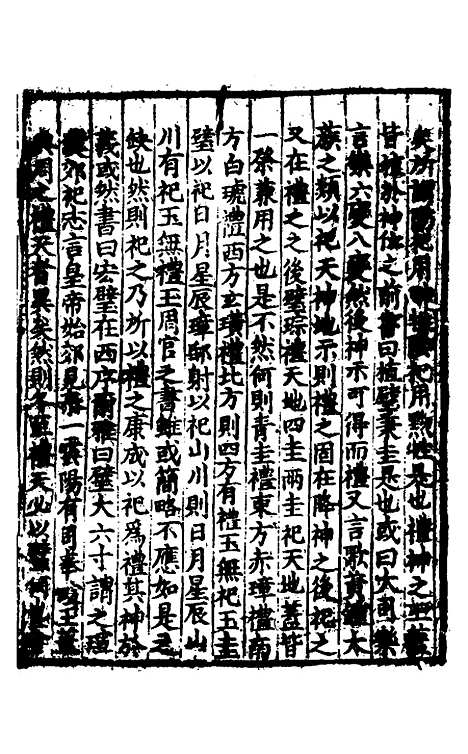 矣所謂陽祀用騂牲陰祀用黝牲是也禮神之玉蓋
皆禮於神位之前書曰植璧秉圭是也或曰大司樂
言樂六變八變然後神示可得而禮又言歌黃鍾大
蔟之類以祀天神地示則禮之固在降神之後祀之
又在禮之之後璧琮禮天地四圭兩圭祀天地蓋皆
一祭兼用之也是不然何則青圭禮東方赤璋禮南
方白琥禮西方玄璜禮北方則四方有禮玉無祀玉圭
璧以祀日月星辰璋邸射以祀山川則日月星辰山
川有祀玉無禮玉周官之書雖或簡略不應如是之
缺也然則祀之乃所以禮之康成以祀為禮其神於
義或然書曰宏璧在西序爾雅曰璧大六寸謂之瑄
漢郊祀志言皇帝始郊見泰一雲陽有司奉瑄玉蓋
與周之禮矣然則冬至禮天必以璧